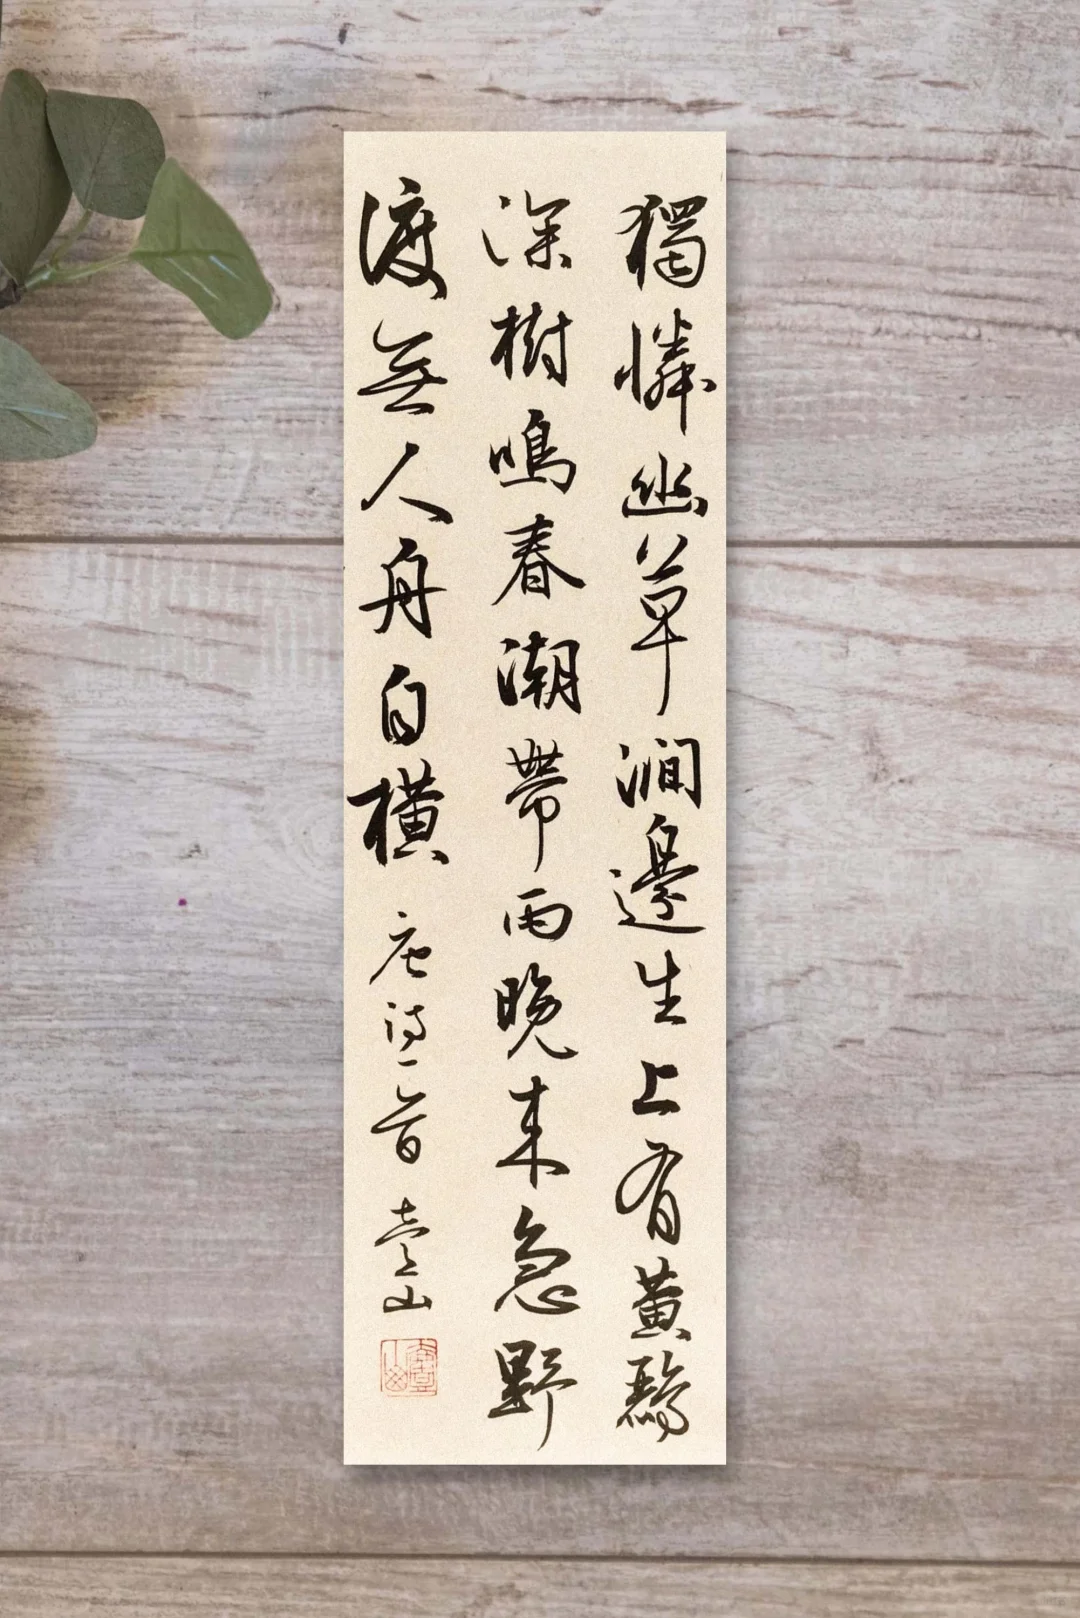 獨憐幽草澗邊生上有黃鸝
深樹鳴春潮帶雨晚来急野
渡無人舟自橫 唐詩一首 山